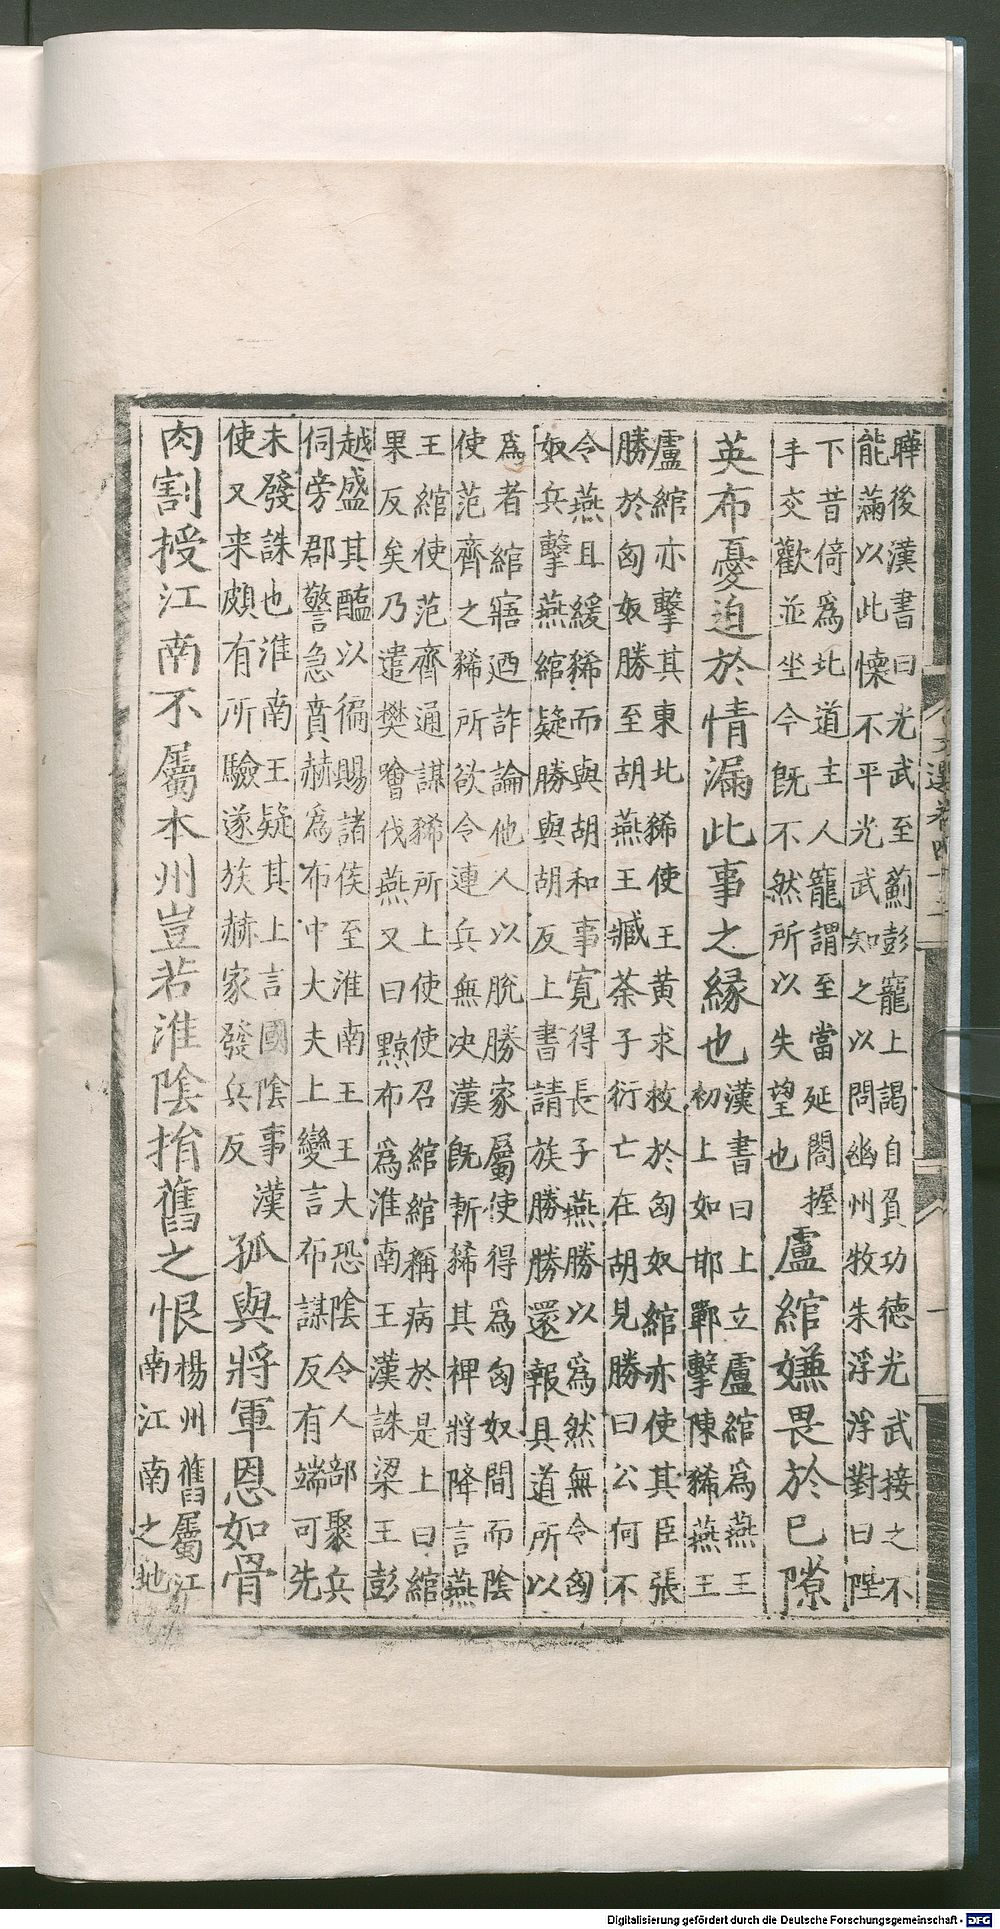 曄後漢書曰光武至薊彭寵上謁自負功德光武接之不
能滿以此懷不平光武知之以問幽州牧朱浮浮對曰陛
下昔倚爲北道主人寵謂至當延閤握
手交歡並坐今旣不然所以失望也
盧綰嫌畏於已隙
英布憂迫於情漏此事之緣也
漢書曰上立盧綰爲燕王
初上如邯鄲擊陳豨燕王
盧綰亦擊其東北豨使王黃求救於匈奴綰亦使其臣張
勝於匈奴勝至胡燕王臧荼子衍亡在胡見勝曰公何不
令燕且緩豨而與胡和事寬得長子燕勝以爲然無令匈
奴兵擊燕綰疑勝與胡反上書請族勝勝還報具道所以
爲者綰寤迺詐論他人以脫勝家屬使得爲匈奴間而陰
使范齊之豨所欲令連兵無決漢旣斬豨其裨將降言燕
王綰使范齊通謀豨所上使使召綰綰稱病於是上曰綰
果反矣乃遣樊噲伐燕又曰黥布爲淮南王漢誅梁王彭
越盛其醢以徧賜諸侯至淮南王王大恐陰令人部聚兵
伺旁郡警急賁赫爲布中大夫上變言布謀反有端可先
未發誅也淮南王疑其上言國陰事漢
使又來頗有所驗遂族赫家發兵反
孤與將軍恩如骨
肉割授江南不屬本州豈若淮陰捐舊之恨
楊州舊屬江
南江南之地